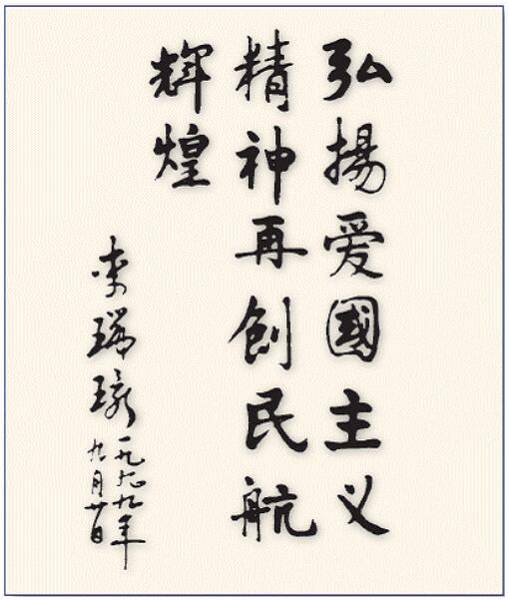 弘揚爱國主义
精神再創民航
輝煌
李瑞環
一九九九年
九月廿日